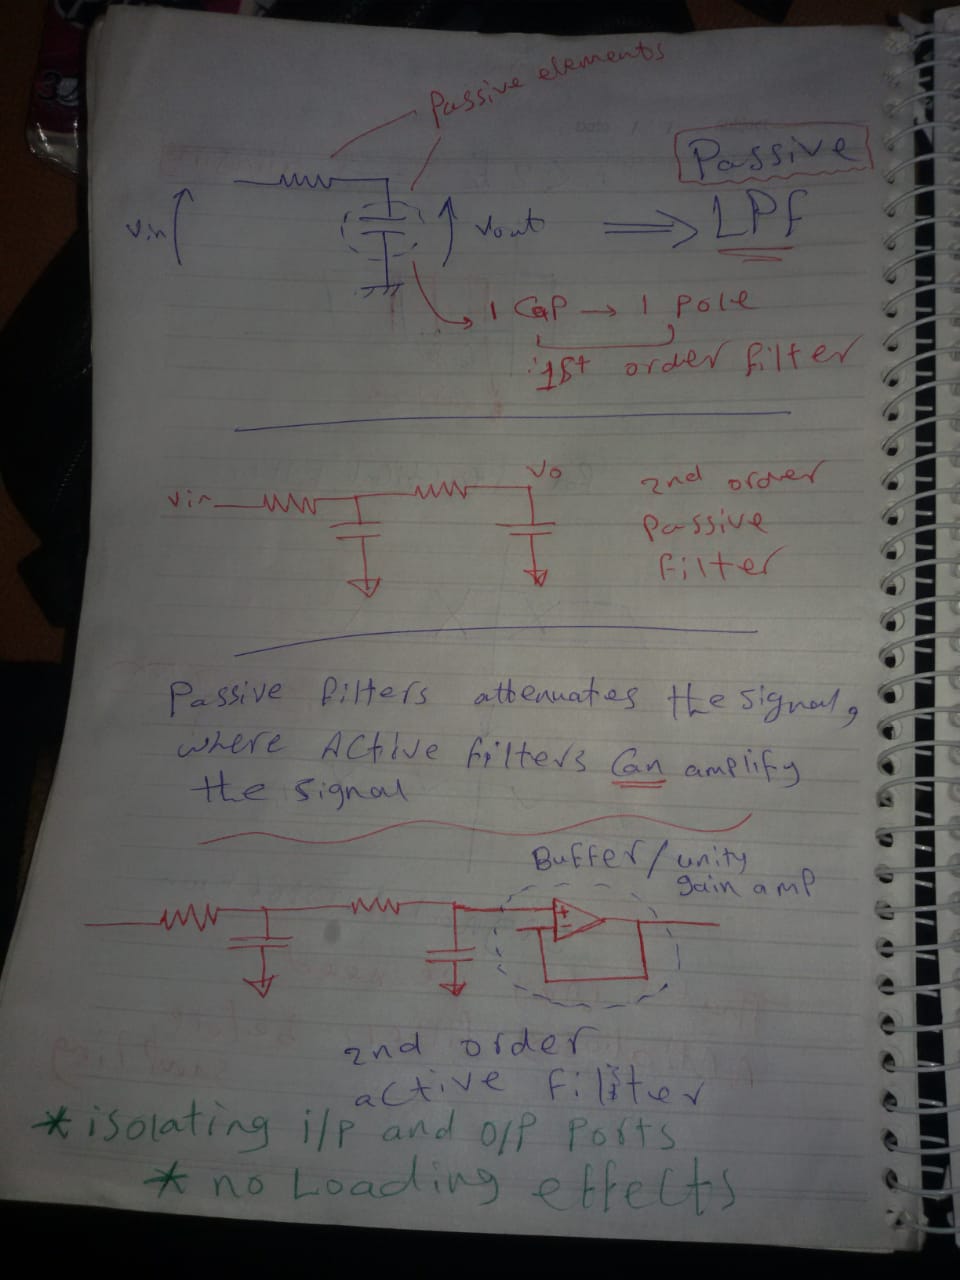 Passive elements
Passive
LPF
Vin
Vout
1 Cap → 1 pole
1st order filter
Vin
Vo
2nd order
Passive
Filter
Passive filters attenuates the signal,
where Active filters Can amplify
the signal
Buffer/unity
gain amp
+
-
2nd order
active filter
* isolating i/p and o/p ports
* no Loading effects